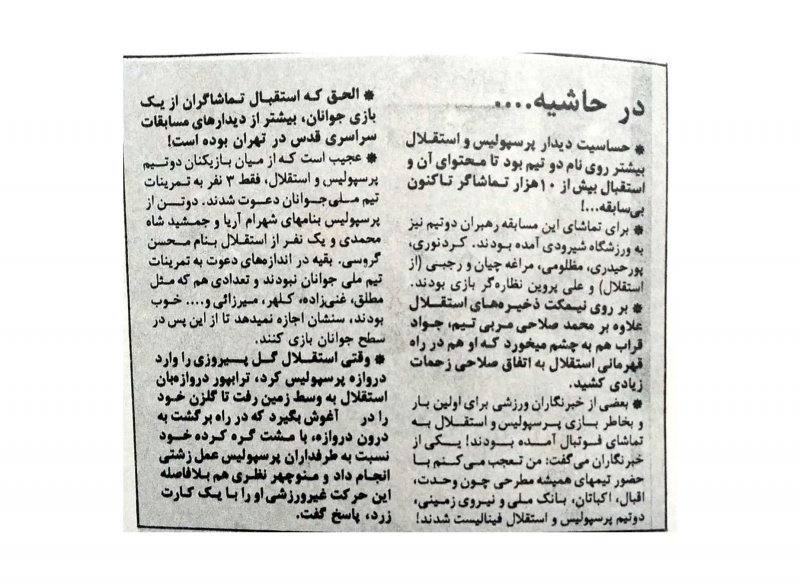 در حاشیه....
* حساسیت دیدار پرسپولیس و استقلال
بیشتر روی نام دو تیم بود تا محتوای آن و
استقبال بیش از ۱۰هزار تماشاگر تاکنون
بی‌سابقه...!
* برای تماشای این مسابقه رهبران دوتیم نیز
به ورزشگاه شیرودی آمده بودند. کردنوری،
پورحیدری، مظلومی، مراغه چیان و رجبی (از
استقلال) و علی پروین نظاره‌گر بازی بودند.
* بر روی نیمکت ذخیره‌های استقلال
علاوه بر محمد صلاحی مربی تیم، جواد
قراب هم به چشم میخورد که او هم در راه
قهرمانی استقلال به اتفاق صلاحی زحمات
زیادی کشید.
* بعضی از خبرنگاران ورزشی برای اولین بار
و بخاطر بازی پرسپولیس و استقلال به
تماشای فوتبال آمده بودند! یکی از
خبرنگاران می‌گفت: من تعجب می‌کنم با
حضور تیمهای همیشه مطرحی چون وحدت،
اقبال، اکباتان، بانک ملی و نیروی زمینی،
دوتیم پرسپولیس و استقلال فینالیست شدند!
* الحق که استقبال تماشاگران از یک
بازی جوانان، بیشتر از دیدارهای مسابقات
سراسری قدس در تهران بوده است!
* عجیب است که از میان بازیکنان دوتیم
پرسپولیس و استقلال، فقط ۳ نفر به تمرینات
تیم ملی‌جوانان دعوت شدند. دوتن از
پرسپولیس بنامهای شهرام آریا و جمشید شاه
محمدی و یک نفر از استقلال بنام محسن
گروسی. بقیه در اندازه‌های دعوت به تمرینات
تیم ملی جوانان نبودند و تعدادی هم که مثل
مطلق، غنی‌زاده، کلهر، میرزائی و.... خوب
بودند، سنشان اجازه نمیدهد تا از این پس در
سطح جوانان بازی کنند.
* وقتی استقلال گل پیروزی را وارد
دروازه پرسپولیس کرد، ترابپور دروازه‌بان
استقلال به وسط زمین رفت تا گلزن خود
را در آغوش بگیرد که در راه برگشت به
درون دروازه، با مشت گره کرده خود
نسبت به طرفداران پرسپولیس عمل زشتی
انجام داد و منوچهر نظری هم بلافاصله
این حرکت غیرورزشی او را با یک کارت
زرد، پاسخ گفت.